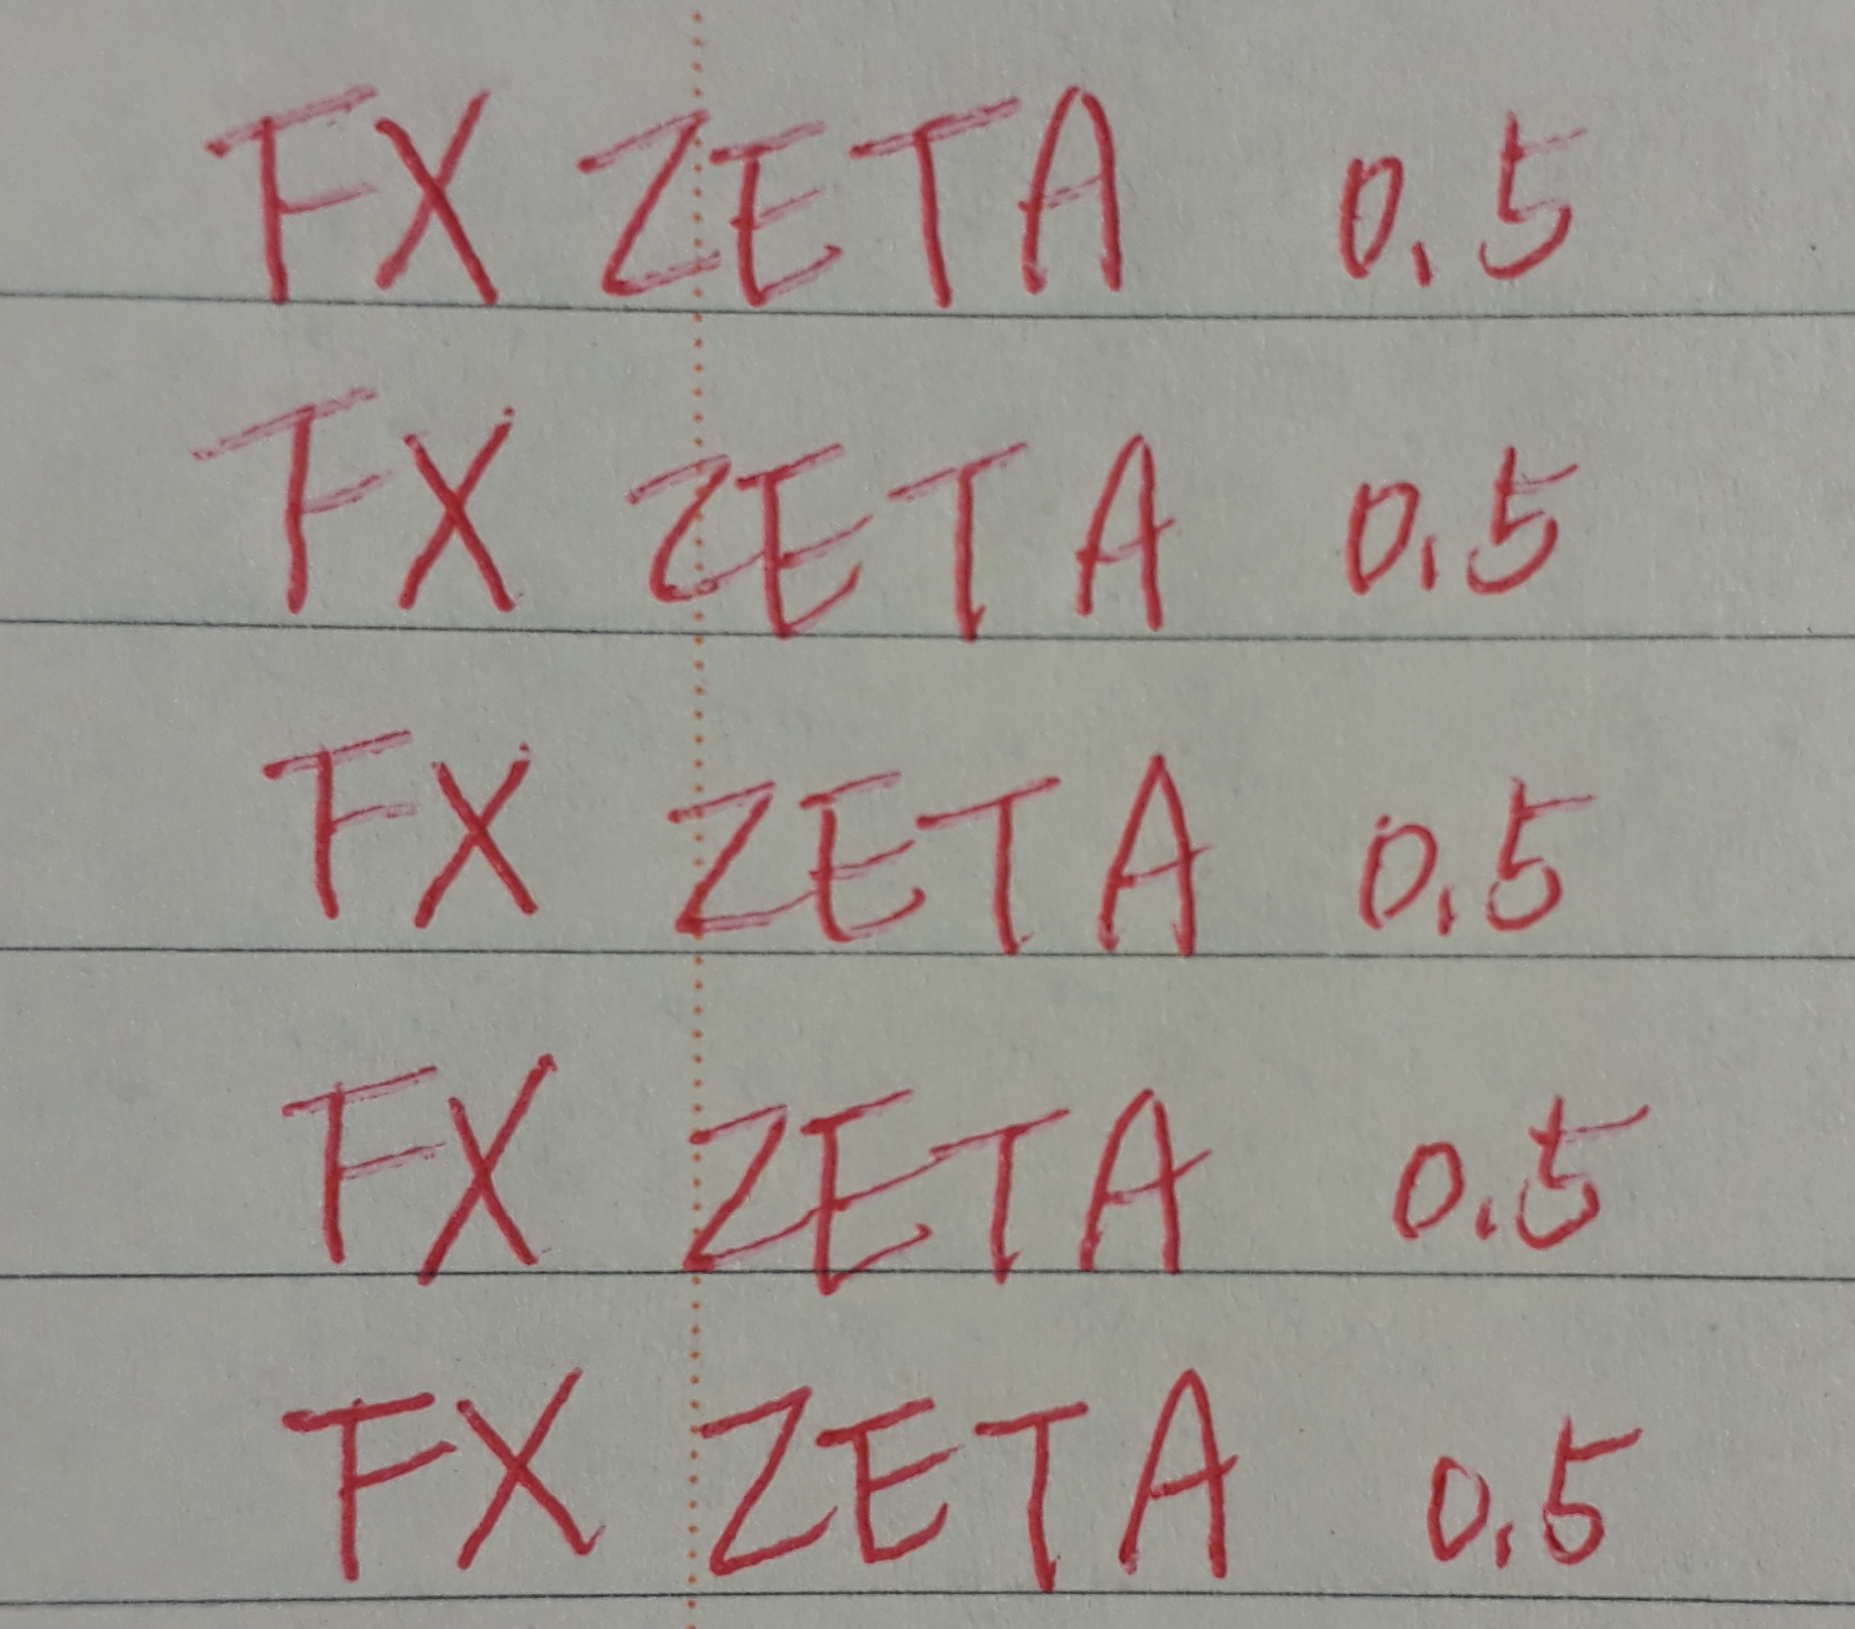 FX ZETA 0.5
FX ZETA 0.5
FX ZETA 0.5
FX ZETA 0.5
FX ZETA 0.5